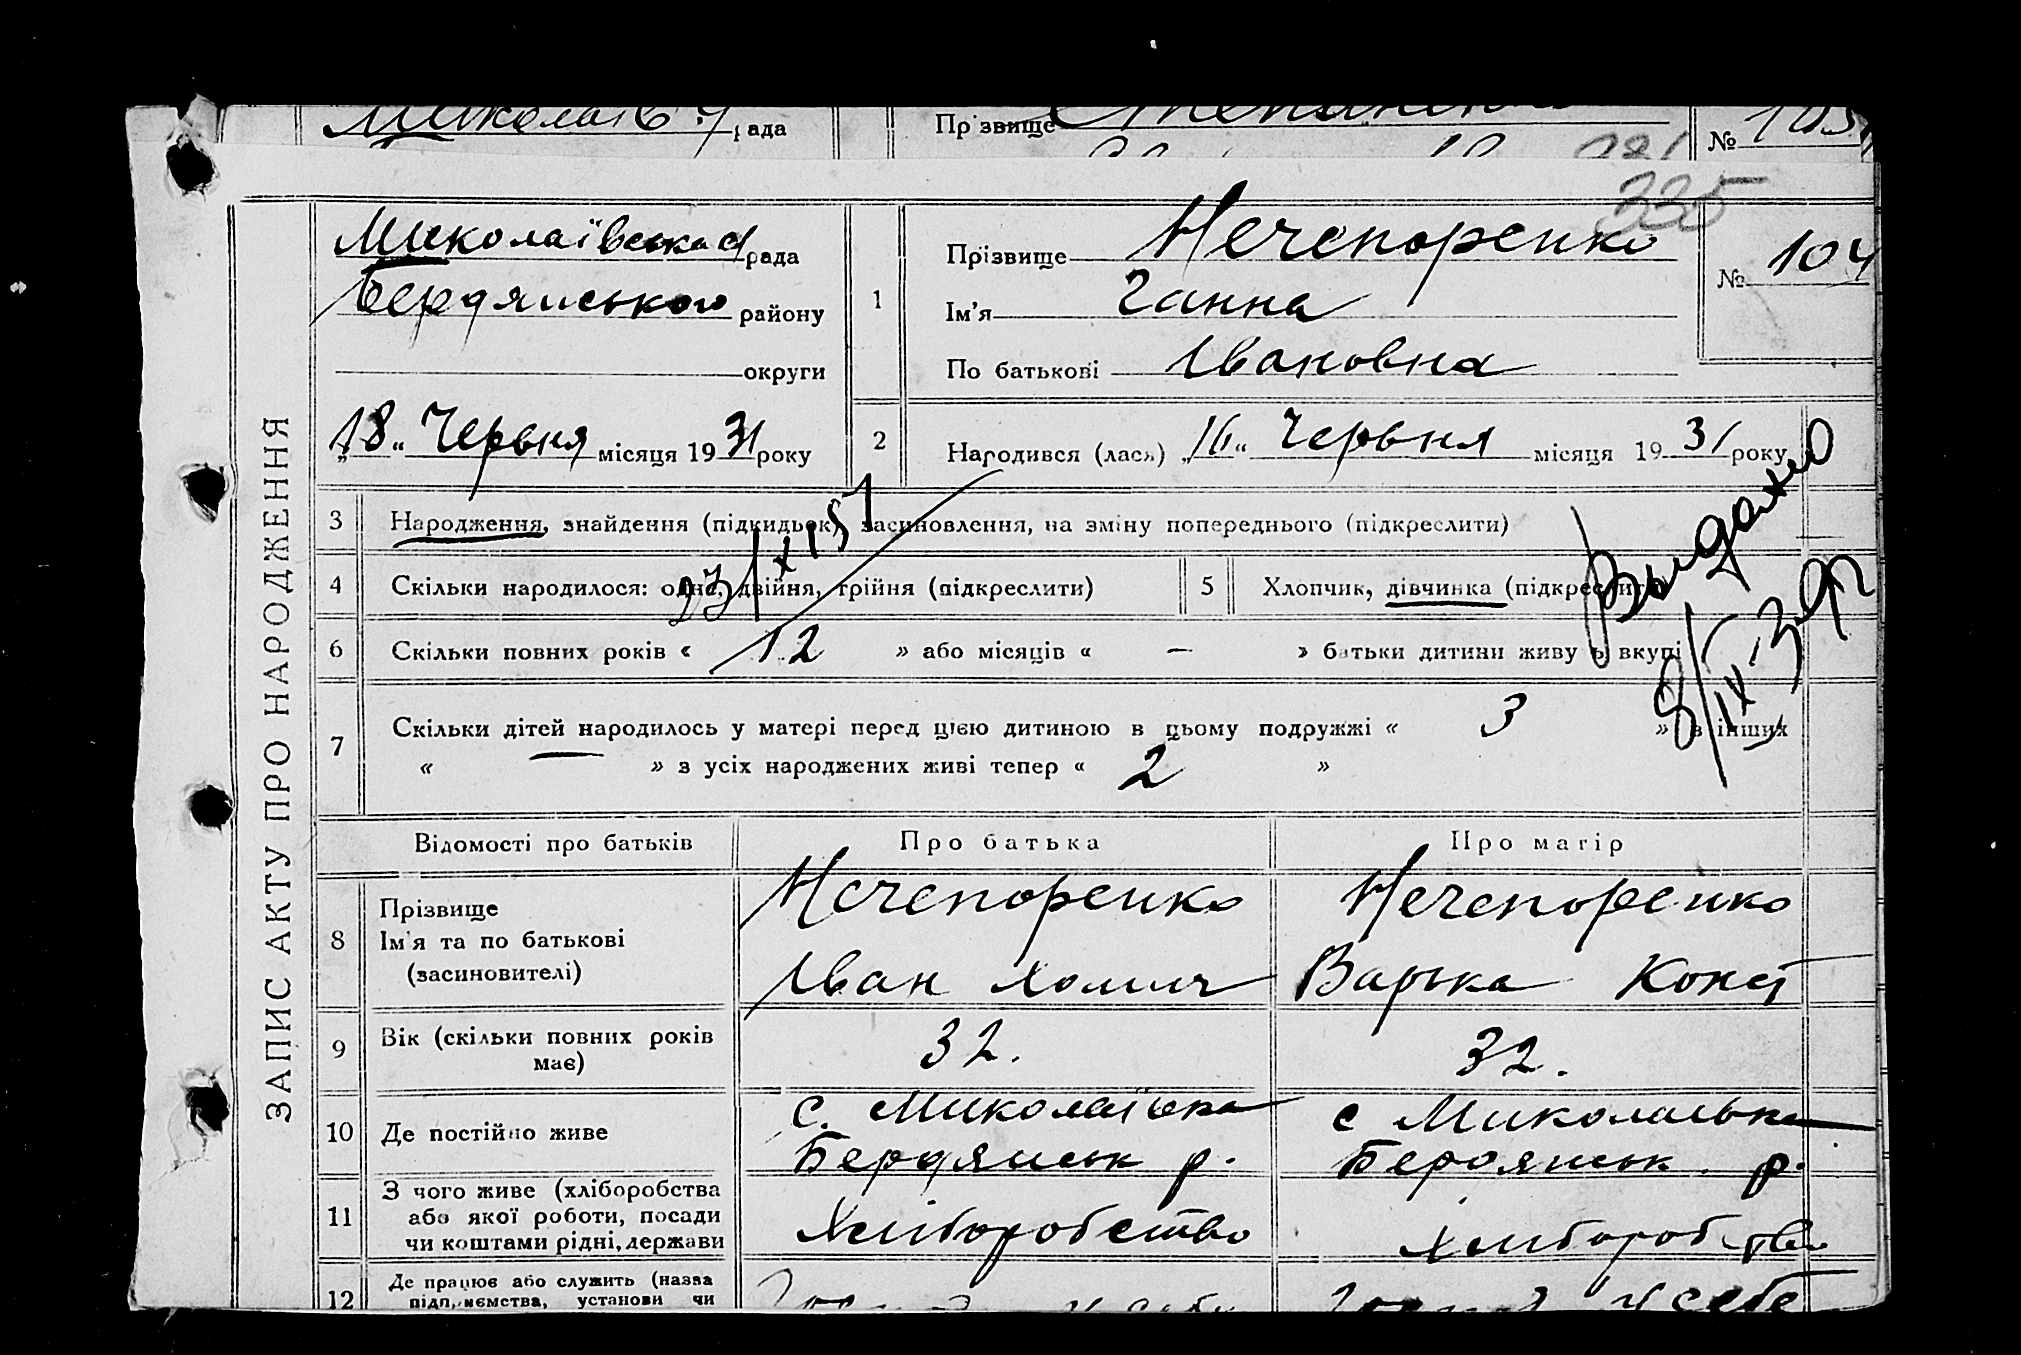 Миколаїв рада
Прізвище
№ 105
335
ЗАПИС АКТУ ПРО НАРОДЖЕННЯ
Миколаївська рада
Бердянського району
округи
„18“ Червня місяця 1931 року
1
Прізвище Нечепоренко
Ім'я Ганна
По батькові Івановна
№ 104
2
Народився (лася) „16“ Червня місяця 1931 року
3 Народження, знайдення (підкидьок), засиновлення, на зміну попереднього (підкреслити)
4 Скільки народилося: одне, двійня, трійня (підкреслити)
5 Хлопчик, дівчинка (підкреслити)
23/XI 51
Выдано
8/IX-39р
6 Скільки повних років « 12 » або місяців « — » батьки дитини живуть вкупі
7 Скільки дітей народилось у матері перед цією дитиною в цьому подружжі « 3 » в інших
« — » з усіх народжених живі тепер « 2 »
Відомості про батьків Про батька Про матір
8 Прізвище
Ім'я та по батькові
(засиновителі)
Нечепоренко
Іван Хомич
Нечепоренко
Варька Конст
9 Вік (скільки повних років
має)
32.
32.
10 Де постійно живе
с. Миколаївка
Бердянськ р.
с Миколаівка
Бердянськ р.
11 З чого живе (хліборобства
або якої роботи, посади
чи коштами рідні, держави
Хліборобство
хліборобство
12 Де працює або служить (назва
підприємства, установи чи
у себе